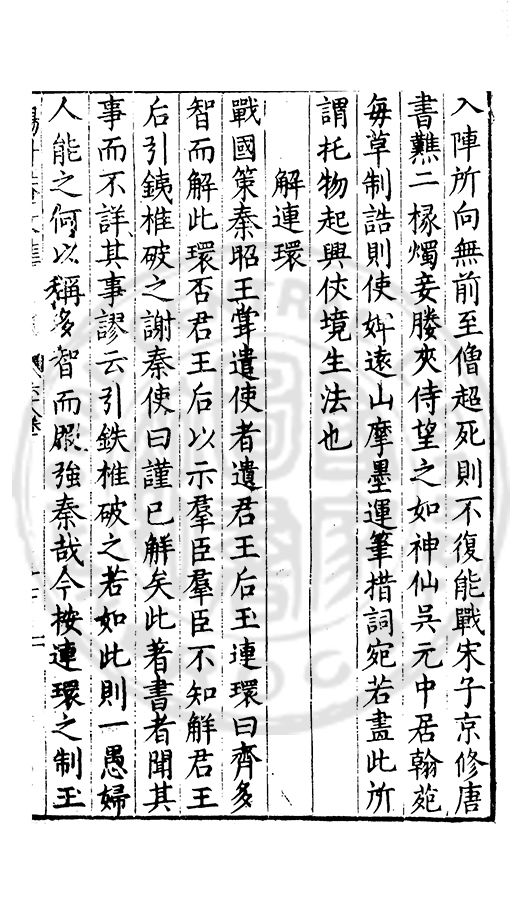 入陣所向無前至僧超死則不復能戰宋子京修唐
書爇二椽燭妾媵夾侍望之如神仙吳元中居翰苑
每草制誥則使婢遠山摩墨運筆措詞宛若畫此所
謂托物起興俠境生法也
解連環
戰國策秦昭王甞遣使者遺君王后玉連環曰齊多
智而解此環否君王后以示羣臣羣臣不知解君王
后引鉄椎破之謝秦使曰謹已解矣此著書者聞其
事而不詳其事謬云引鉄椎破之若如此則一愚婦
人能之何以稱多智而服強秦哉今按連環之制玉